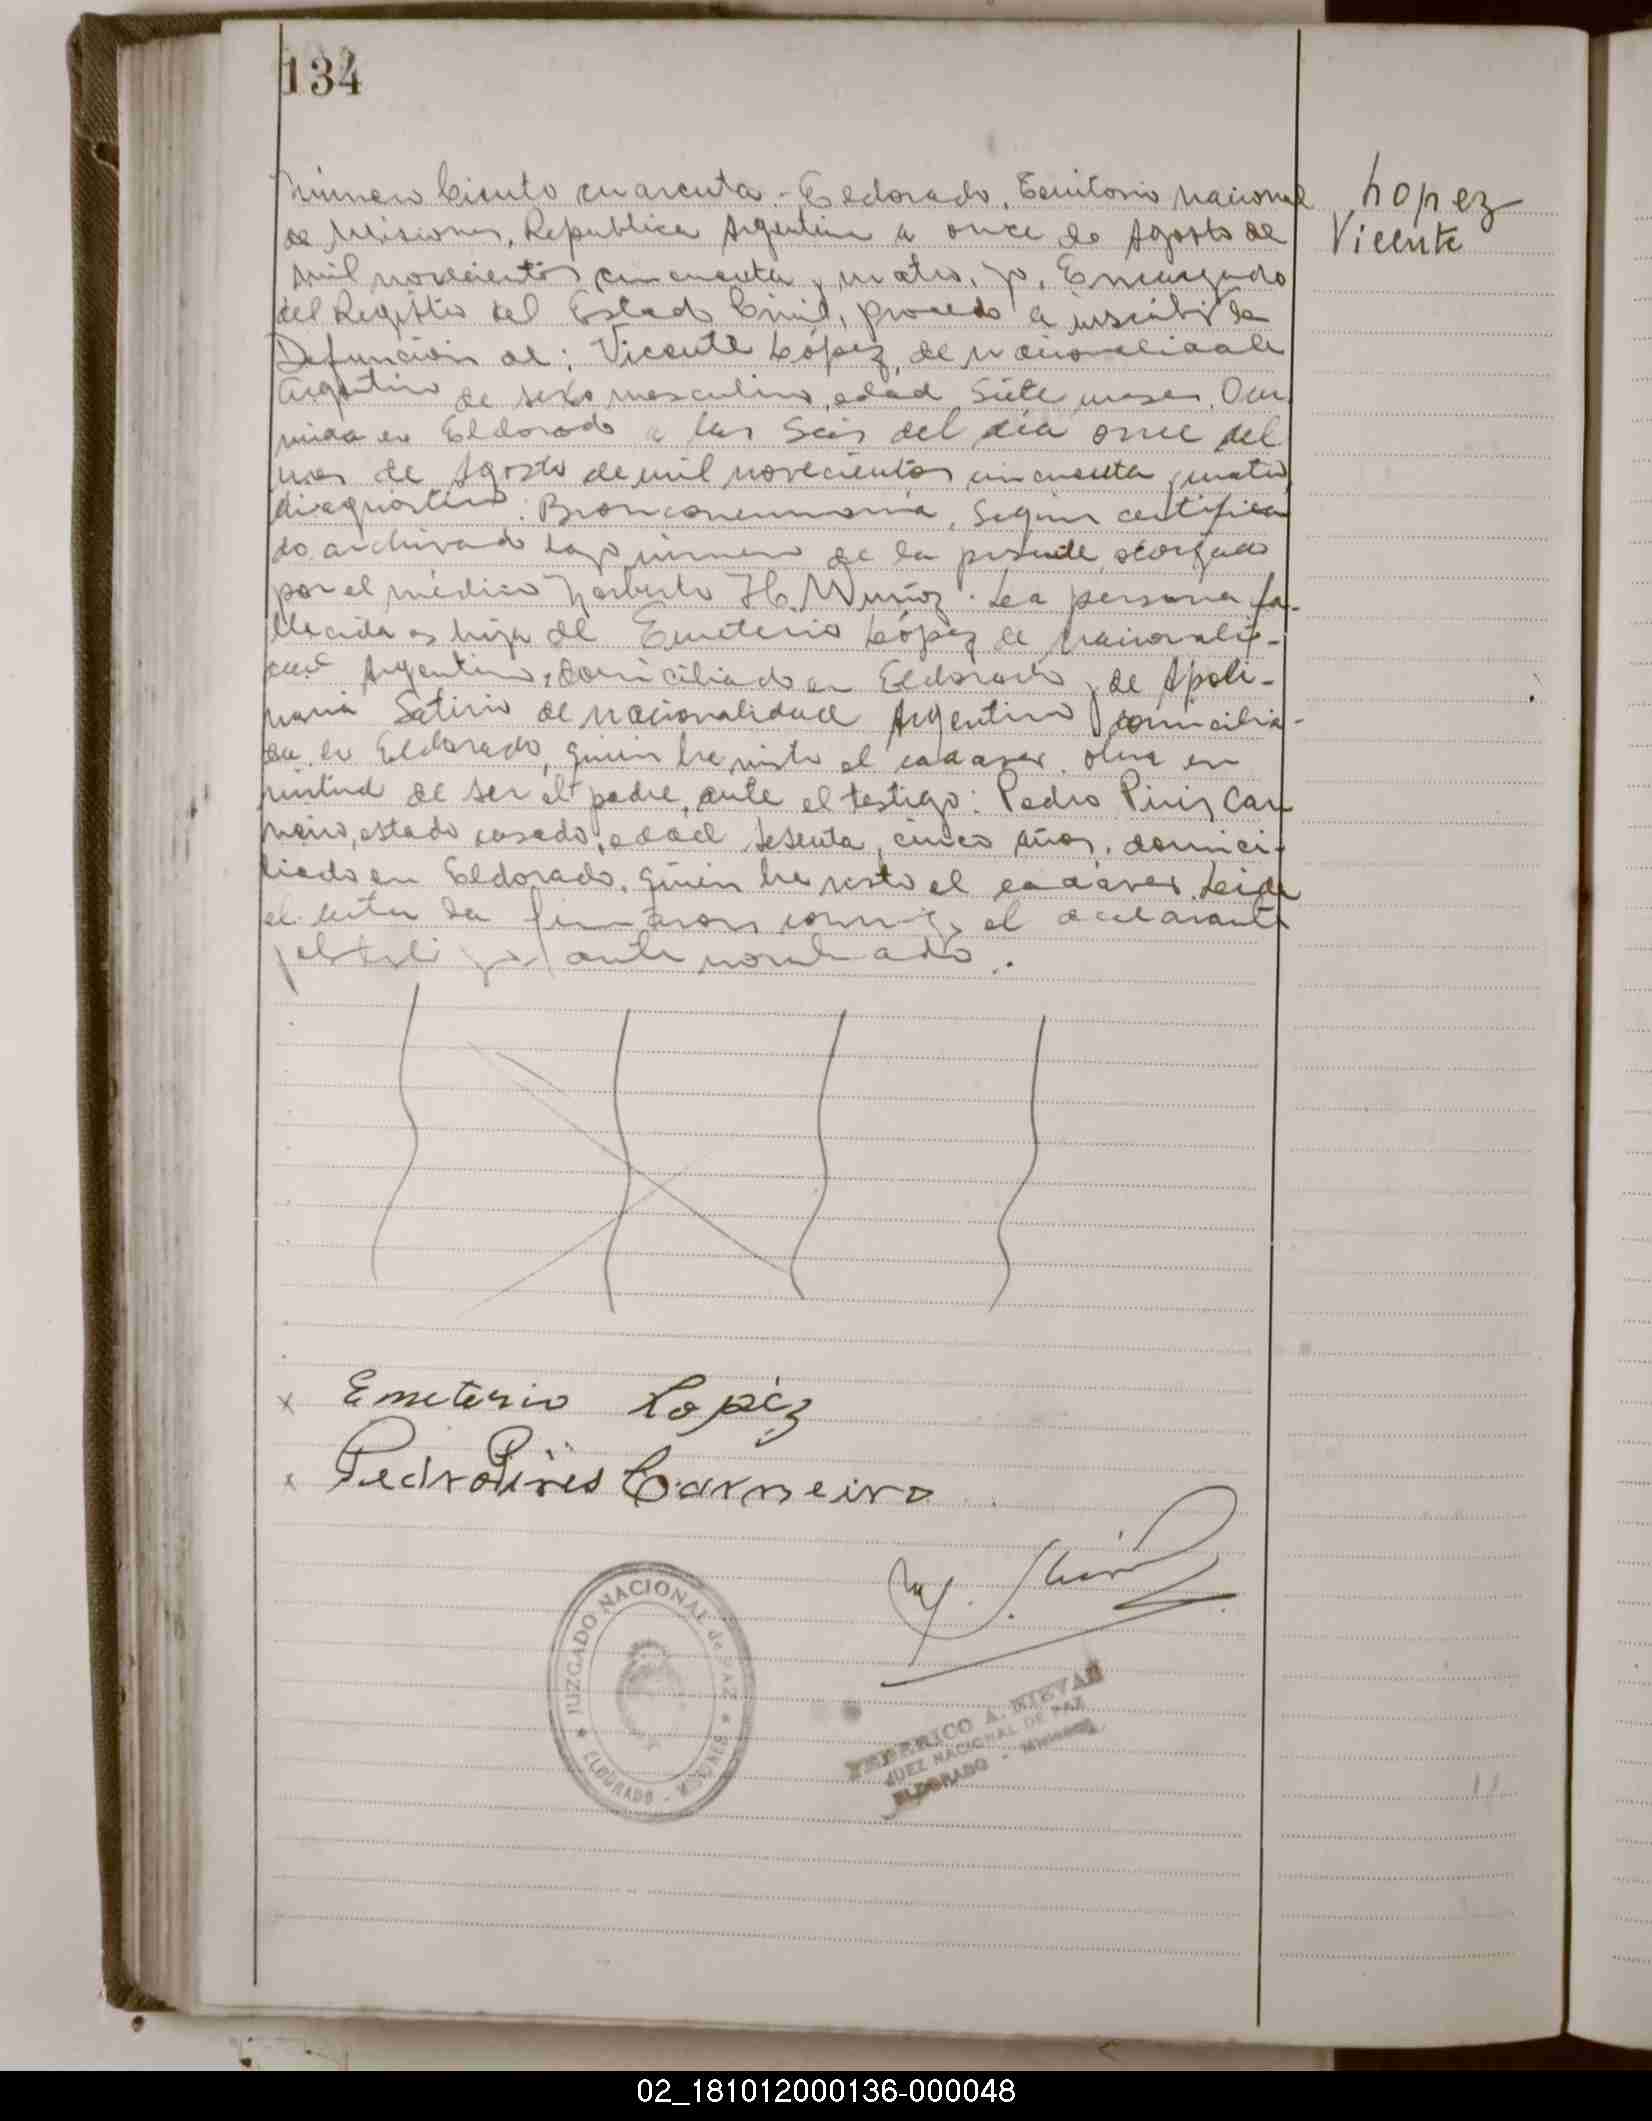 134
Número Ciento cuarenta.- Eldorado, Territorio Nacional
de Misiones, República Argentina a once de Agosto de
mil novecientos cincuenta y cuatro, yo, Encargado
del Registro del Estado Civil, procedo a inscribir la
Defunción de: Vicente López, de nacionalidad
Argentino de sexo masculino, edad siete meses. Ocu
rrida en Eldorado a las Seis del día once del
mes de Agosto de mil novecientos cincuenta y cuatro
diagnóstico: Bronconeumonia, según certifica
do archivado bajo número de la presente, otorgado
por el médico Norberto H. Muñoz. La persona fa-
llecida es hija de Emeterio López de nacionali-
dad Argentino, domiciliado en Eldorado y de Apoli-
naria de nacionalidad Argentino domicilia-
da en Eldorado, quien ha visto el cadaver. obra en
virtud de ser el padre, ante el testigo: Pedro Piriz Car
neiro, estado casado, edad sesenta y cinco años, domici-
liado en Eldorado, quien ha visto el cadaver. Leida
el acta la firmaron conmigo el declarante
y el testigo antenombrado.
Lopez
Vicente
x Emeterio Lopéz
x Pedro Pires Carneiro
JUZGADO NACIONAL de PAZ
ELDORADO - MISIONES
FEDERICO A.
JUEZ NACIONAL DE PAZ
ELDORADO - Misiones
02_181012000136-000048